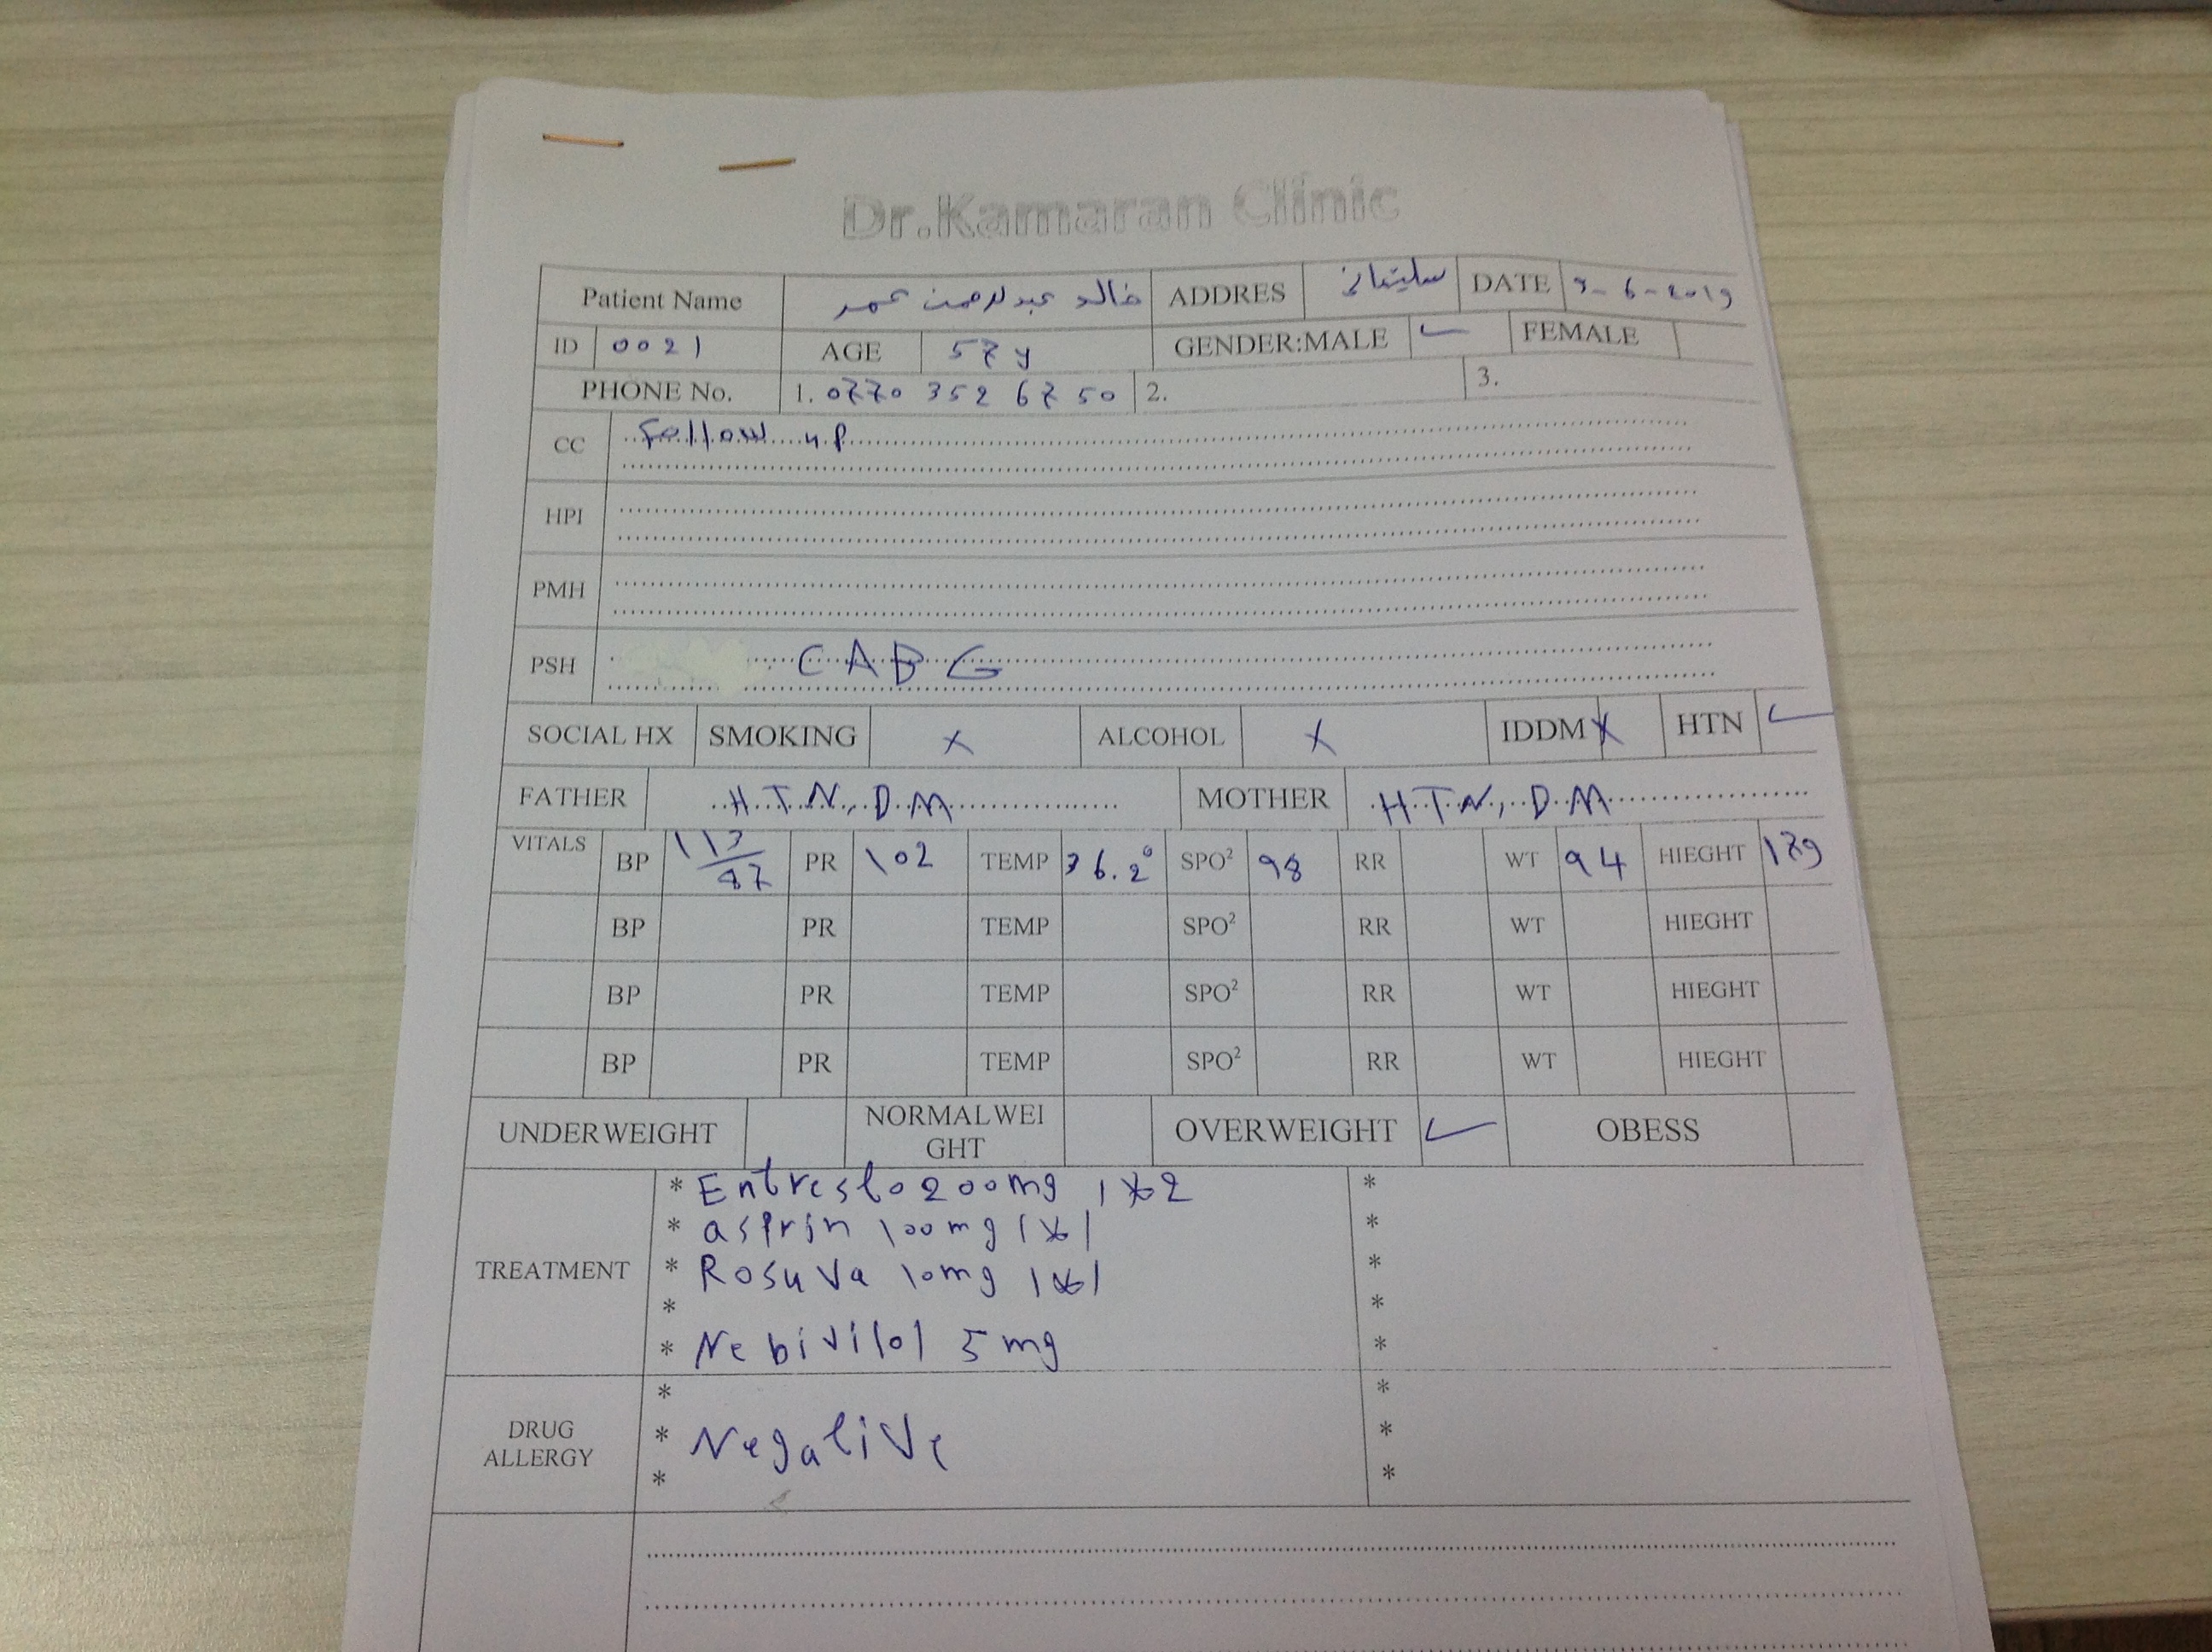 Dr.Kamaran Clinic
Patient Name خالد عبدلرحمن عمر ADDRES سليماني DATE 9-6-2019
ID 0021 AGE 57 y GENDER:MALE ✓ FEMALE
PHONE No. 1. 0770 352 67 50 2. 3.
CC Follow up
HPI
PMH
PSH CABG
SOCIAL HX SMOKING X ALCOHOL X IDDM X HTN ✓
FATHER HTN, DM MOTHER HTN, DM
VITALS BP 113/87 PR 102 TEMP 36.2° SPO² 98 RR WT 94 HIEGHT 179
BP PR TEMP SPO² RR WT HIEGHT
BP PR TEMP SPO² RR WT HIEGHT
BP PR TEMP SPO² RR WT HIEGHT
UNDERWEIGHT NORMALWEI
GHT OVERWEIGHT ✓ OBESS
* Entresto 200mg 1x2 *
* asprin 100mg 1x1 *
TREATMENT * Rosuva 10mg 1x1 *
* *
* Nebivilol 5mg *
* *
DRUG
ALLERGY * Negative *
* *